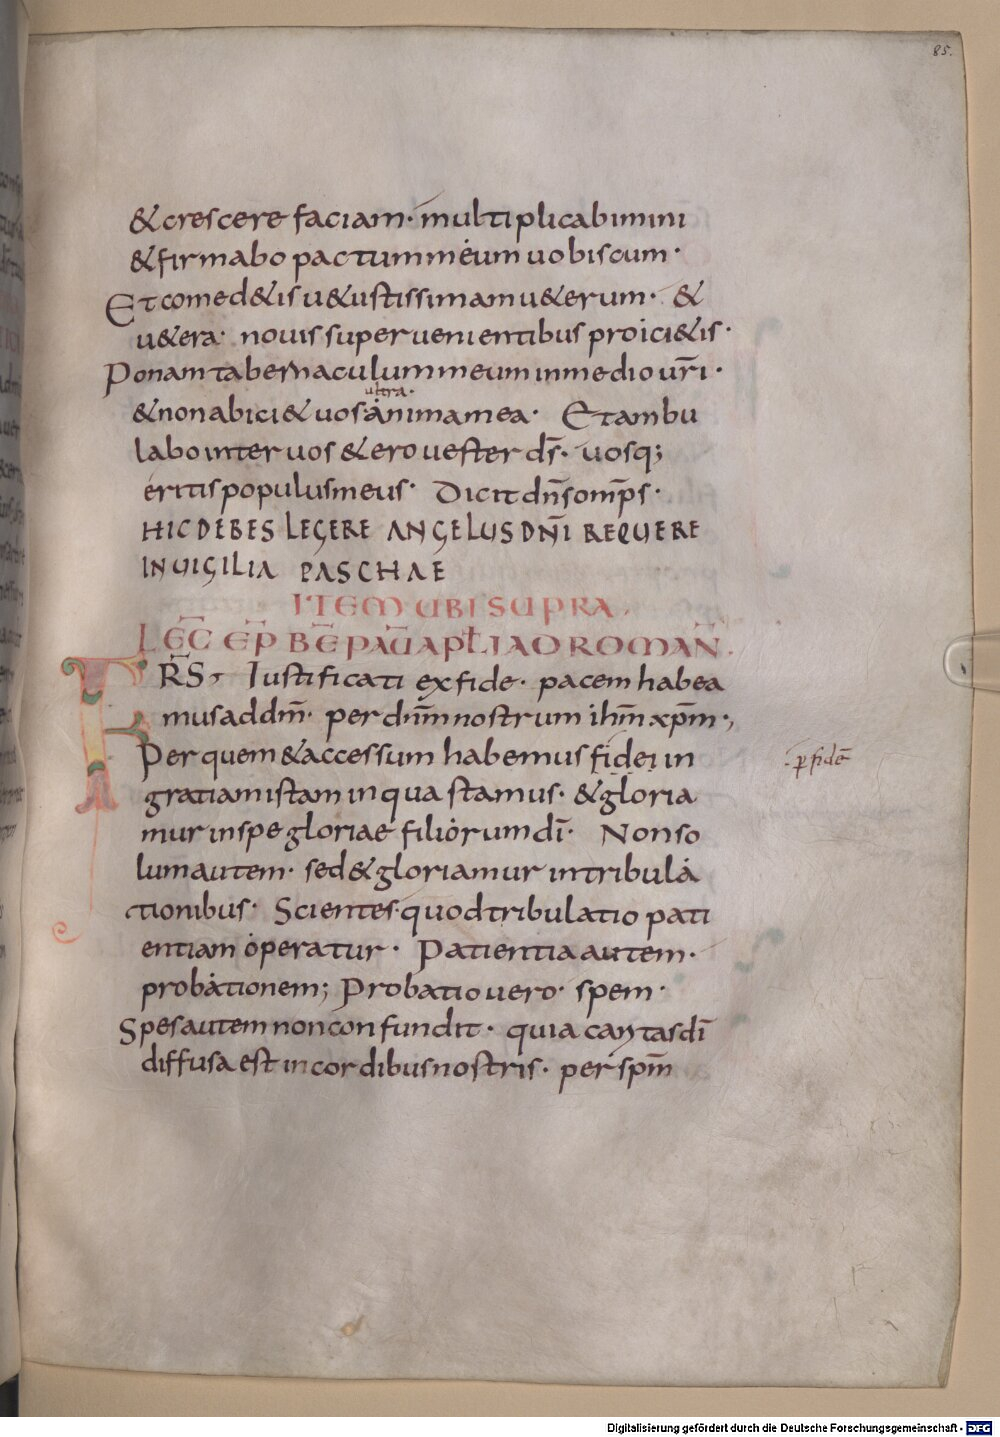 85.
& crescere faciam· multiplicabimini
& firmabo pactum meum uobiscum·
Et comed&is u&ustissimam u&erum· &
u&era· nouis superuenientibus proici&is·
Ponam tabernaculum meum in medio ur̄i·
ultra·
& non abici& uos anima mea· Et ambu
labo inter uos & ero uester ds̄· uosq;
eritis populus meus· Dicit dn̄s omp̄s·
HIC DEBES LEGERE ANGELUS DN̄I REQUERE
IN UIGILIA PASCHAE
ITEM UBI SUPRA.
LEC̄ EP̄ BĒ PAŪ APLI AD ROMAN̄.
FR̄S, Iustificati ex fide· pacem habea
mus ad dm̄· per dn̄m nostrum ihm̄ xpm̄·,
Per quem & accessum habemus fidei in
p̱ fidē
gratiam istam in qua stamus· & gloria
mur in spe gloriae filiorum dī· Non so
lum autem· sed & gloriamur in tribula
tionibus· Scientes· quod tribulatio pati
entiam operatur· Patientia autem·
probationem; Probatio uero· spem·
Spes autem non confundit· quia caritas dī
diffusa est in cordibus nostris· per spm̄
Digitalisierung gefördert durch die Deutsche Forschungsgemeinschaft - DFG